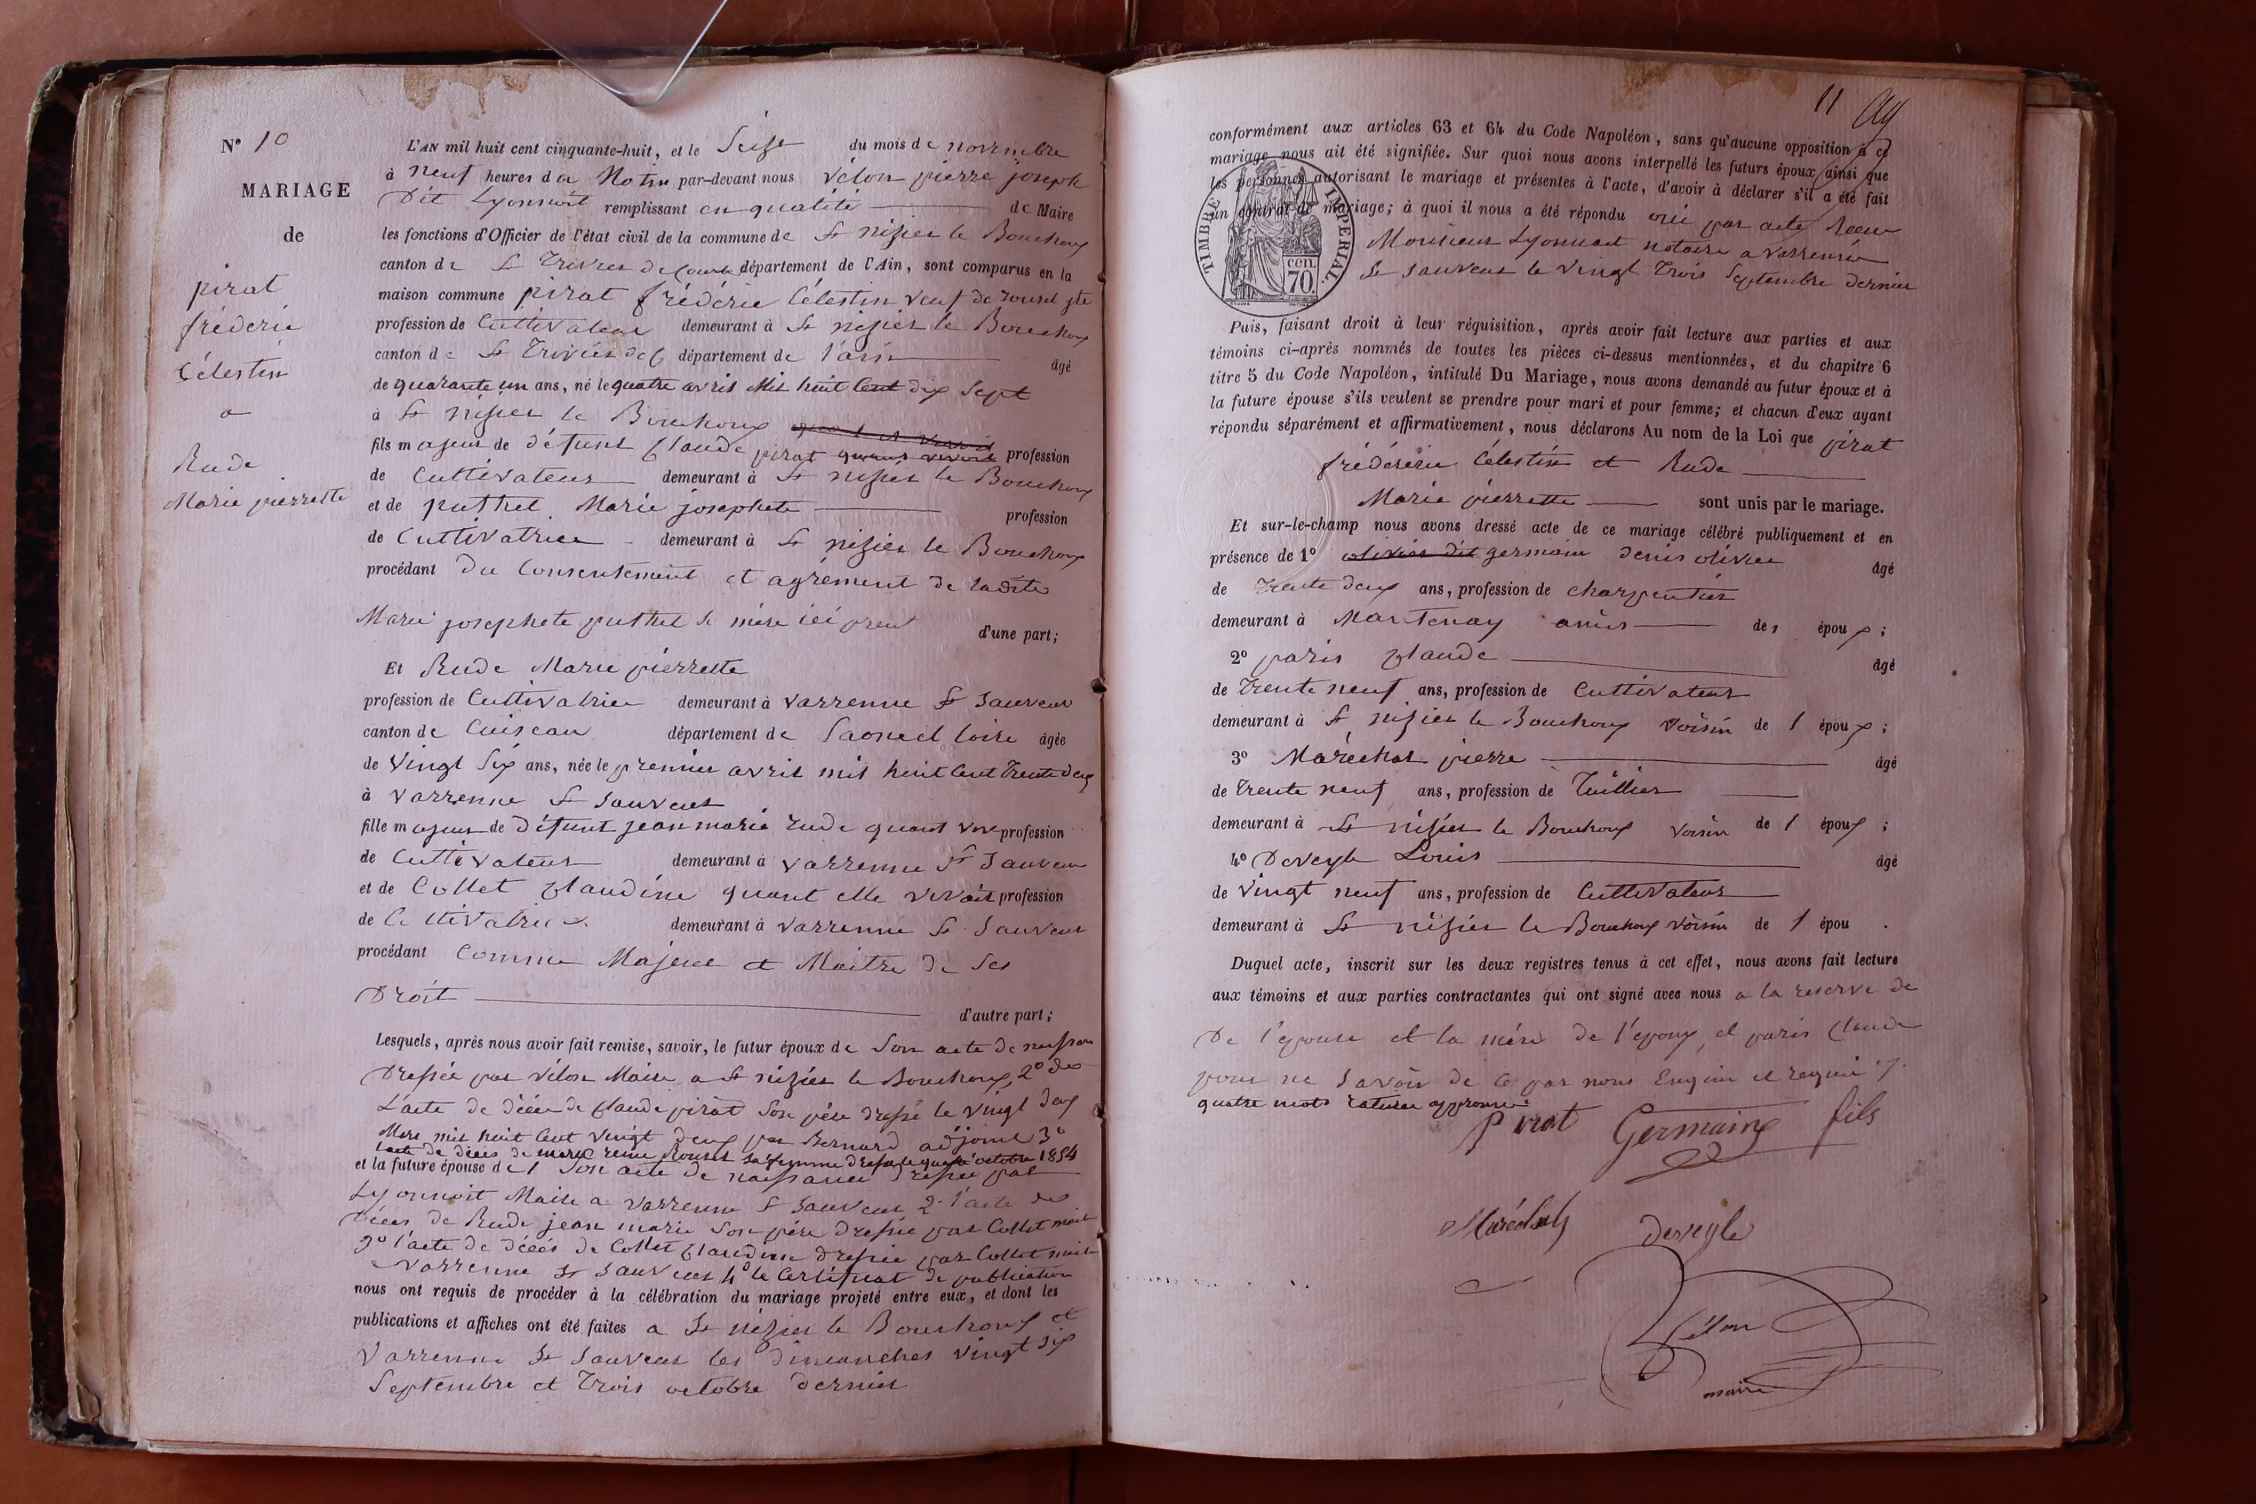 N° 10
MARIAGE
de
pirat
fréderic
Célestin
a
Rude
Marie pierrette
L'AN mil huit cent cinquante-huit, et le Seize du mois de novembre
à neuf heures du Matin par-devant nous vélon pierre joseph
Dit Lyonnoit remplissant en qualité de Maire
les fonctions d'Officier de l'état civil de la commune de St nizier le Bouchoux
canton de St Trivier de Courte département de l'Ain, sont comparus en la
maison commune pirat frédéric Célestin veuf de rousel
profession de Cultivateur demeurant à St nizier le Bouchoux
canton de St Trivier de C département de l'ain âgé
de quarante un ans, né le quatre avril Mil huit Cent dix Sept
à St nizier le Bouchoux
fils majeur de défunt Claude pirat quant vivoit profession
de Cultivateur demeurant à St nizier le Bouchoux
et de puthet Marie josephete profession
de Cultivatrice demeurant à St nizier le Bouchoux
procédant du Consentement et agrément de ladite
Marie josephete puthet sa mère ici prent
d'une part;
Et Rude Marie pierrette
profession de Cultivatrice demeurant à varrenne St Sauveur
canton de Cuiseau département de Saone et loire âgée
de vingt Six ans, née le premier avril mil huit Cent Trente deux
à varrenne St Sauveur
fille majeur de défunt jean marie rude quant vive profession
de Cultivateur demeurant à varrenne St Sauveur
et de Collet Claudine quant elle vivoit profession
de Cultivatrice demeurant à varrenne St Sauveur
procédant Comme Majeur et Maitre de Ses
Droit
d'autre part;
Lesquels, après nous avoir fait remise, savoir, le futur époux de Son acte de naissance
Dressée par vélon Maire a St nizier le Bouchoux, 2° de
L'acte de décée de Claude pirat Son père dressé le vingt deux
Mars mil huit Cent vingt deux par Bernard adjoint 3°
l'acte de décés de marie reine Rousel sa femme dressé le quatre octobre 1854
et la future épouse de 1 Son acte de naissance dressée par
Lyonnoit Maire a varrenne St Sauveur 2° l'acte de
Décés de Rude jean marie Son père dressée par Collet maire
3° l'acte de décés de Collet Claudine dressée par Collet maire
varrenne St Sauveur 4° le Certificat de publication
nous ont requis de procéder à la célébration du mariage projeté entre eux, et dont les
publications et affiches ont été faites a St nizier le Bouchoux et
varrenne St Sauveur les dimanches vingt six
Septembre et Trois octobre dernier
11
conformément aux articles 63 et 64 du Code Napoléon, sans qu'aucune opposition à ce
mariage nous ait été signifiée. Sur quoi nous avons interpellé les futurs époux ainsi que
les personnes autorisant le mariage et présentes à l'acte, d'avoir à déclarer s'il a été fait
un contrat de mariage; à quoi il nous a été répondu oui par acte Recu
Monsieur Lyonnoit notaire a varrenne
St Sauveur le vingt Trois Septembre dernier
TIMBRE IMPERIAL.
70 cen.
Puis, faisant droit à leur réquisition, après avoir fait lecture aux parties et aux
témoins ci-après nommés de toutes les pièces ci-dessus mentionnées, et du chapitre 6
titre 5 du Code Napoléon, intitulé Du Mariage, nous avons demandé au futur époux et à
la future épouse s'ils veulent se prendre pour mari et pour femme; et chacun d'eux ayant
répondu séparément et affirmativement, nous déclarons Au nom de la Loi que pirat
fréderic Célestin et Rude
Marie pierrette sont unis par le mariage.
Et sur-le-champ nous avons dressé acte de ce mariage célébré publiquement et en
présence de 1° olivier dit germain denis olivier âgé
de Trente deux ans, profession de charpentier
demeurant à Mantenay amis des époux;
2° paris Claude âgé
de Trente neuf ans, profession de Cultivateur
demeurant à St nizier le Bouchoux voisin de l époux;
3° Maréchal pierre âgé
de Trente neuf ans, profession de Tuillier
demeurant à St nizier le Bouchoux voisin de l époux;
4° Deveyle Louis âgé
de vingt neuf ans, profession de Cultivateur
demeurant à St nizier le Bouchoux voisin de l épou.
Duquel acte, inscrit sur les deux registres tenus à cet effet, nous avons fait lecture
aux témoins et aux parties contractantes qui ont signé avec nous a la reserve de
De l'epouse et la mére de l'epoux, et paris Claude
pour ne Savoir de Ce par nous Enquis et requis
quatre mots raturer approuvé
Pirat Germain fils
Maréchal
deveyle
Vélon
maire